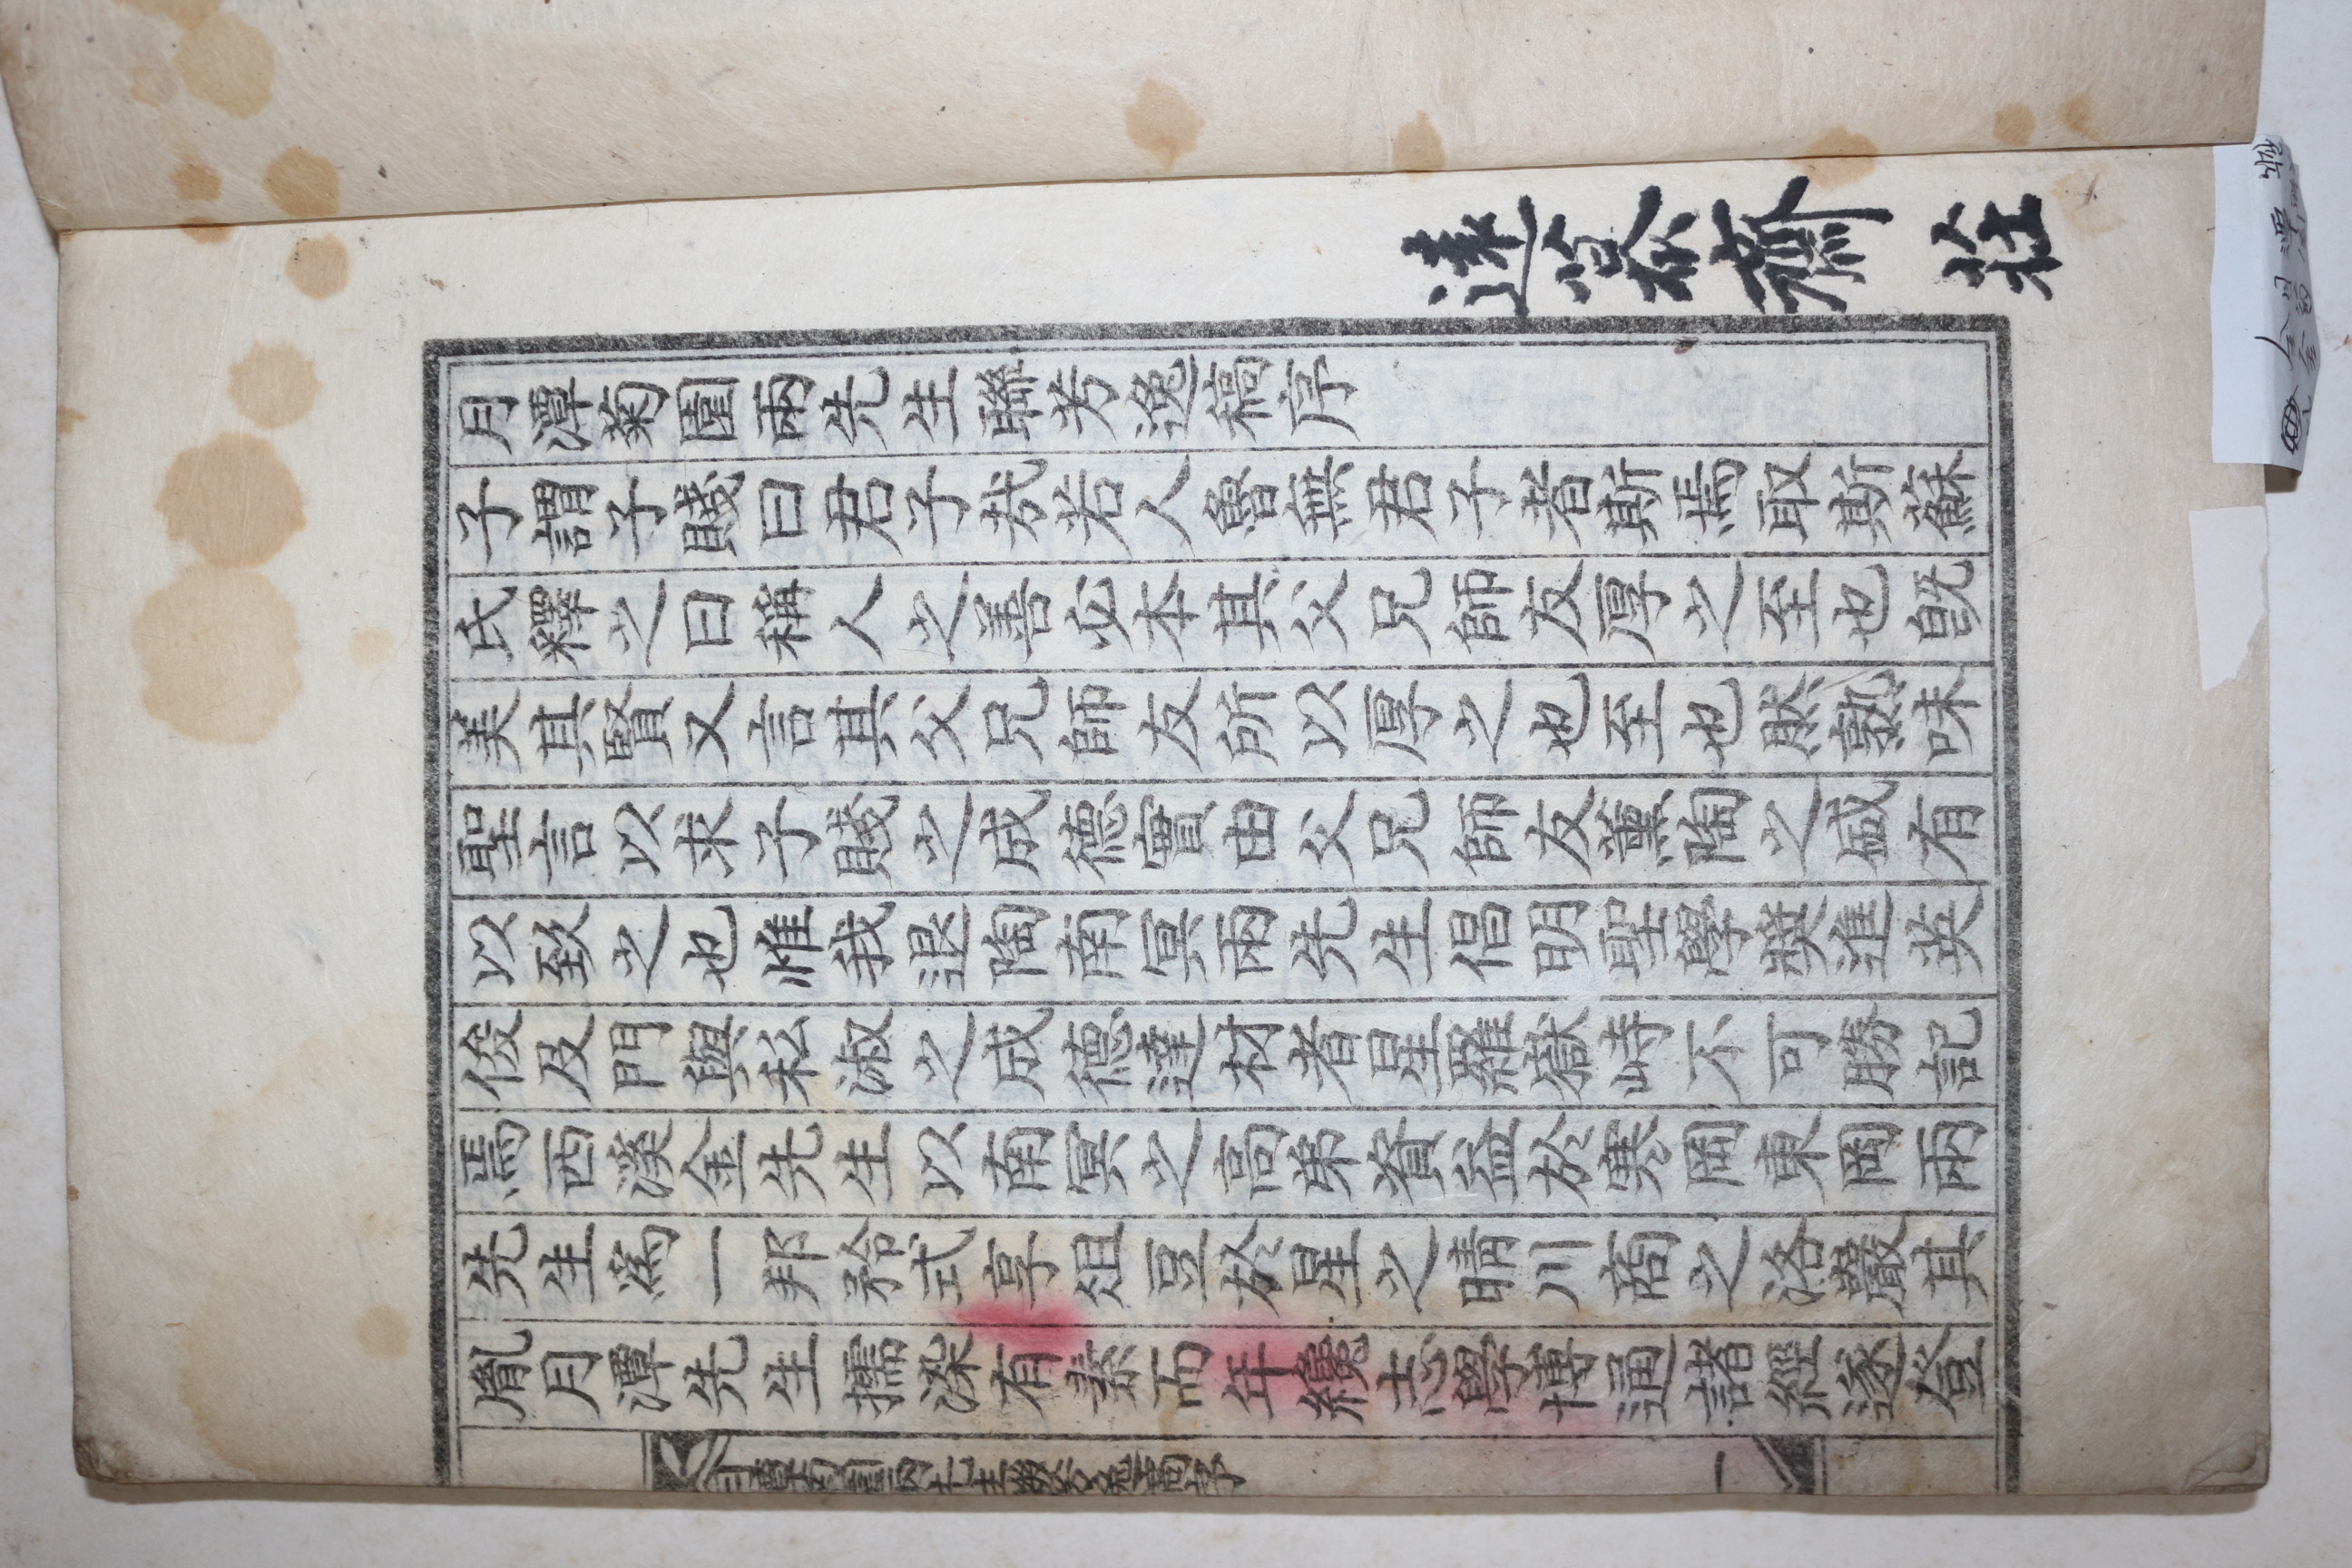 遠慕齋 莊
月潭菊園兩先生聯芳逸稿序
子謂子賤曰君子㢤若人魯無君子者斯焉取斯蘇
氏釋之曰稱人之善必本其父兄師友厚之至也旣
美其賢又言其父兄師友所以厚之也至也然熟味
聖言以求子賤之成德實由父兄師友薰陶之盛有
以致之也惟我退陶南冥兩先生倡明聖學奬進英
俊及門與私淑之成德達材者星羅嶽峙不可勝記
焉西溪金先生以南冥之高弟資益於寒岡東岡兩
先生爲一邦矜式享俎豆於星之晴川商之洛巖其
胤月潭先生擩染有素而年纔志學博通諸經遂登
月潭菊園兩先生聯芳逸稿序
一